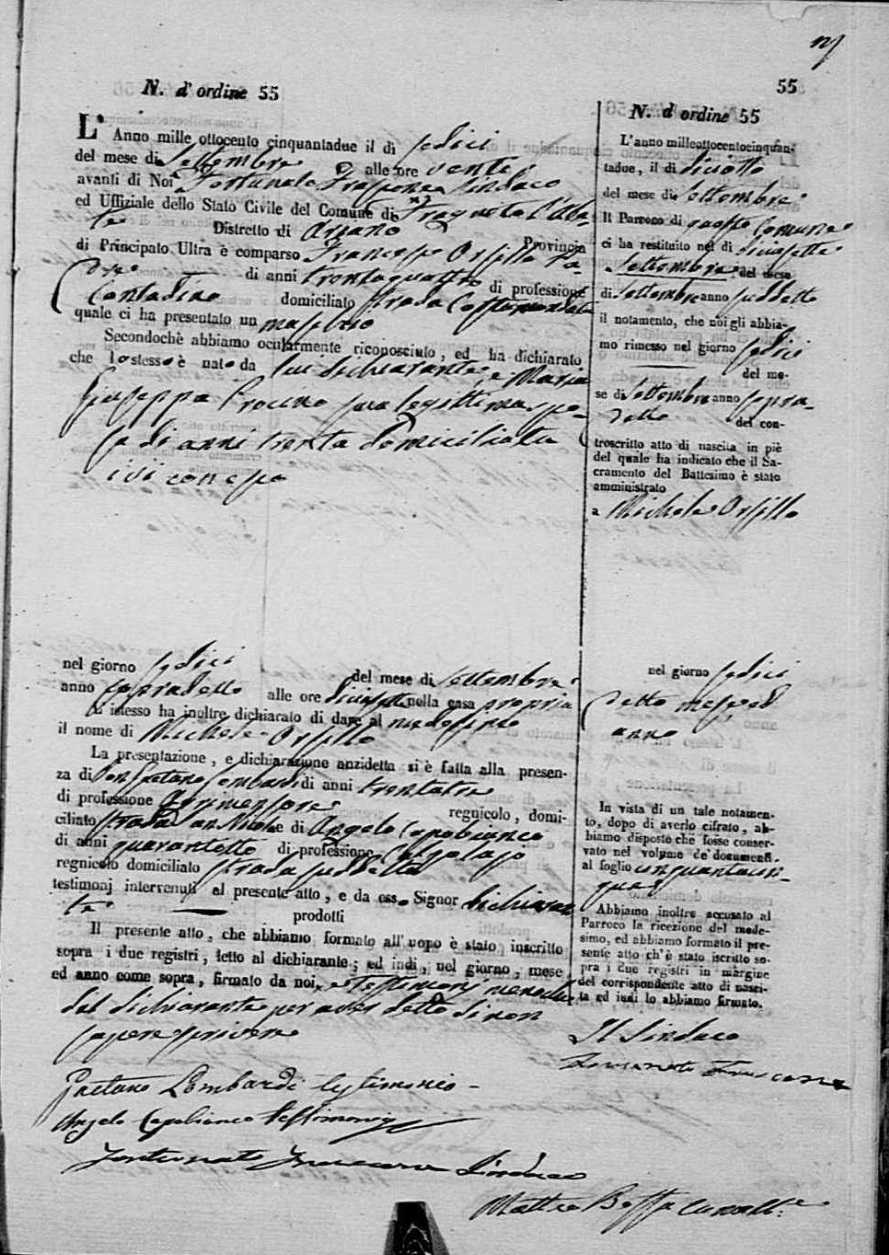 55
N. d'ordine 55
L'Anno mille ottocento cinquantadue il dì sedici
del mese di Settembre alle ore venti
avanti di Noi Fortunato Sindaco
ed Uffiziale dello Stato Civile del Comune di Fragneto l'Aba-
te Distretto di Ariano Provincia
di Principato Ultra è comparso Francesco Orsillo Pa-
dre di anni trentaquattro di professione
Contadino domiciliato strada
quale ci ha presentato un maschio
Secondochè abbiamo ocularmente riconosciuto, ed ha dichiarato
che lo stesso è nato da lui dichiarante, e Maria
Giuseppa sua legittima spo-
sa di anni trenta domiciliata
ivi con esso
nel giorno sedici del mese di Settembre
anno sopradetto alle ore diciasette nella casa propria
Lo istesso ha inoltre dichiarato di dare al medesimo
il nome di Michele Orsillo
La presentazione, e dichiarazione anzidetta si è fatta alla presen-
za di Don Gaetano Lombardi di anni trentatre
di professione Agrimensore regnicolo, domi-
ciliato strada San Nicola di Angelo Capobianco
di anni quarantotto di professione Calzolajo
regnicolo domiciliato strada suddetta
testimonj intervenuti al presente atto, e da esso Signor dichiaran-
te prodotti
Il presente atto, che abbiamo formato all'uopo è stato inscritto
sopra i due registri, letto al dichiarante; ed indi, nel giorno, mese
ed anno come sopra, firmato da noi, e testimonj meno che
dal dichiarante per aver detto di non
sapere scrivere
Gaetano Lombardi testimonio
Angelo Capobianco testimonio
Fortunato Sindaco
Matteo Canc.re
N. d'ordine 55
L'anno milleottocentocinquan-
tadue, il dì diciotto
del mese di Settembre
Il Parroco di questo Comune
ci ha restituito nel dì diciasette
Settembre del mese
di Settembre anno suddetto
il notamento, che noi gli abbia-
mo rimesso nel giorno sedici
del me-
se di Settembre anno sopra-
detto del con-
troscritto atto di nascita in piè
del quale ha indicato che il Sa-
cramento del Battesimo è stato
amministrato
a Michele Orsillo
nel giorno sedici
detto mese ed
anno
In vista di un tale notamen-
to, dopo di averlo cifrato, ab-
biamo disposto che fosse conser-
vato nel volume de' documenti.
al foglio cinquantacin-
que
Abbiamo inoltre accusato al
Parroco la ricezione del mede-
simo, ed abbiamo formato il pre-
sente atto ch'è stato iscritto so-
pra i due registri in margine
del corrispondente atto di nasci-
ta ed indi lo abbiamo firmato.
Il Sindaco
Fortunato